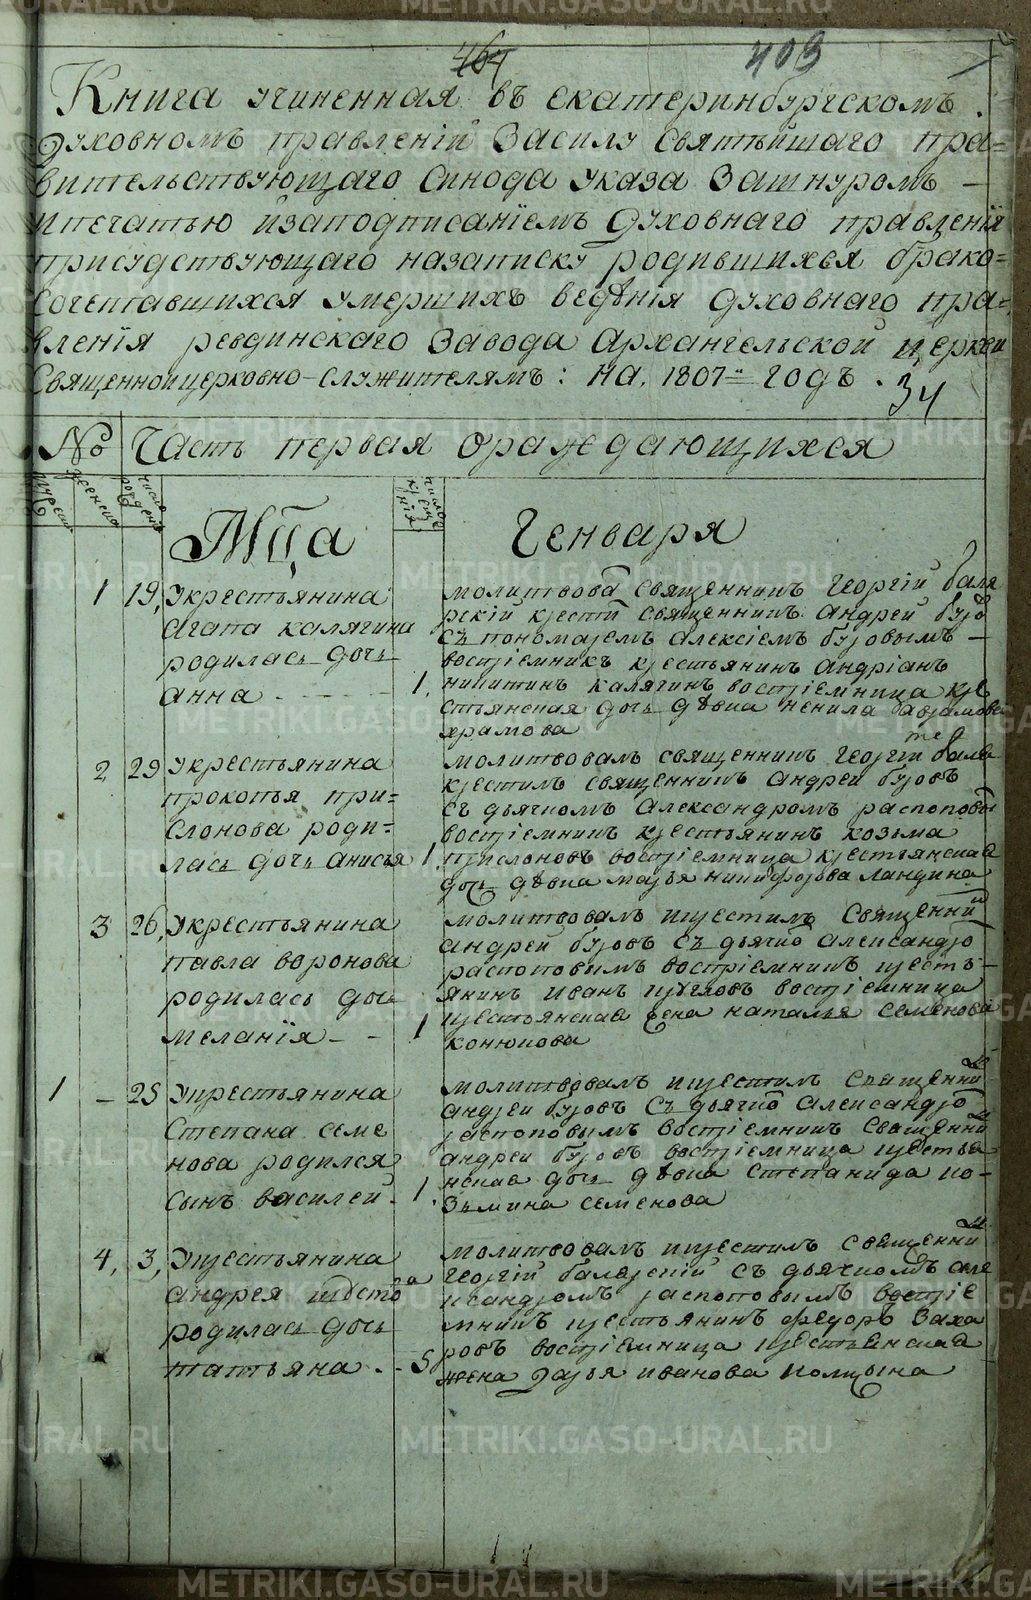 467
403
Книга учиненная въ екатеринбургскомъ
духовномъ правленїи Засилу Святѣйшаго пра=
вительствующаго Синода указа Зашнуромъ
ипечатью изаподписанїемъ духовнаго правленїя
присудствующаго назаписку родившихся брако=
сочетавшихся умершихъ ведѣнїя духовнаго пра=
вленїя ревдинскаго Завода Архангельской церкви
Священноицерковно-служителямъ: на 1807й годъ.
34
№ Часть первая ораждающихся
мужеска
женска
число рождения
Мц҃а
число крещенїя
Генваря
1 19, Укрестьянина
Агапа калягина
родилась дочь
анна 1.
молитвова священникъ Георгїй баля
рскїй крести священникъ андрей буро
съ пономаремъ алексїемъ буровымъ
воспрїемникъ крестьянинъ андрїанъ
никитинъ калягинъ воспрїемница кре
стьянская дочь дѣвка ненила
храмова
2 29 Укрестьянина
прокопья при=
слонова роди=
лась дочь анисья 1.
молитвовалъ священникъ Георгїй баля
крестилъ священникъ андрей буровъ
съ дьячкомъ Александромъ распоповы
воспрїемникъ крестьянинъ козьма
прислоновъ воспрїемница крестьянская
дочь дѣвка марья никифорова ландина
3 26, Укрестьянина
павла воронова
родилась дочь
меланїя 1
молитвовалъ икрестилъ священни
андрей буровъ съ дьячко александро
распоповымъ воспрїемникъ кресть
янинъ иванъ кругловъ воспрїемница
крестьянская жена наталья семенова
конюкова
1 – 25 Укрестьянина
Степана семе
нова родился
сынъ василей 1.
молитвовалъ икрестилъ священни
андрей буровъ съ дьячко александро
распоповымъ воспрїемникъ священни
андрей буровъ воспрїемница крестья
нская дочь дѣвка степанида ко-
зьмина семенова
4, 3, Укрестьянина
андрея шесто
родилась дочь
татьяна 5
молитвовалъ икрестилъ священни
Георгїй балярскїй съ дьячкомъ але
ксандромъ распоповымъ воспрїе
мникъ крестьянинъ федоръ Заха
ровъ воспрїемница крестьянская
жена дарья иванова
METRIKI.GASO-URAL.RU